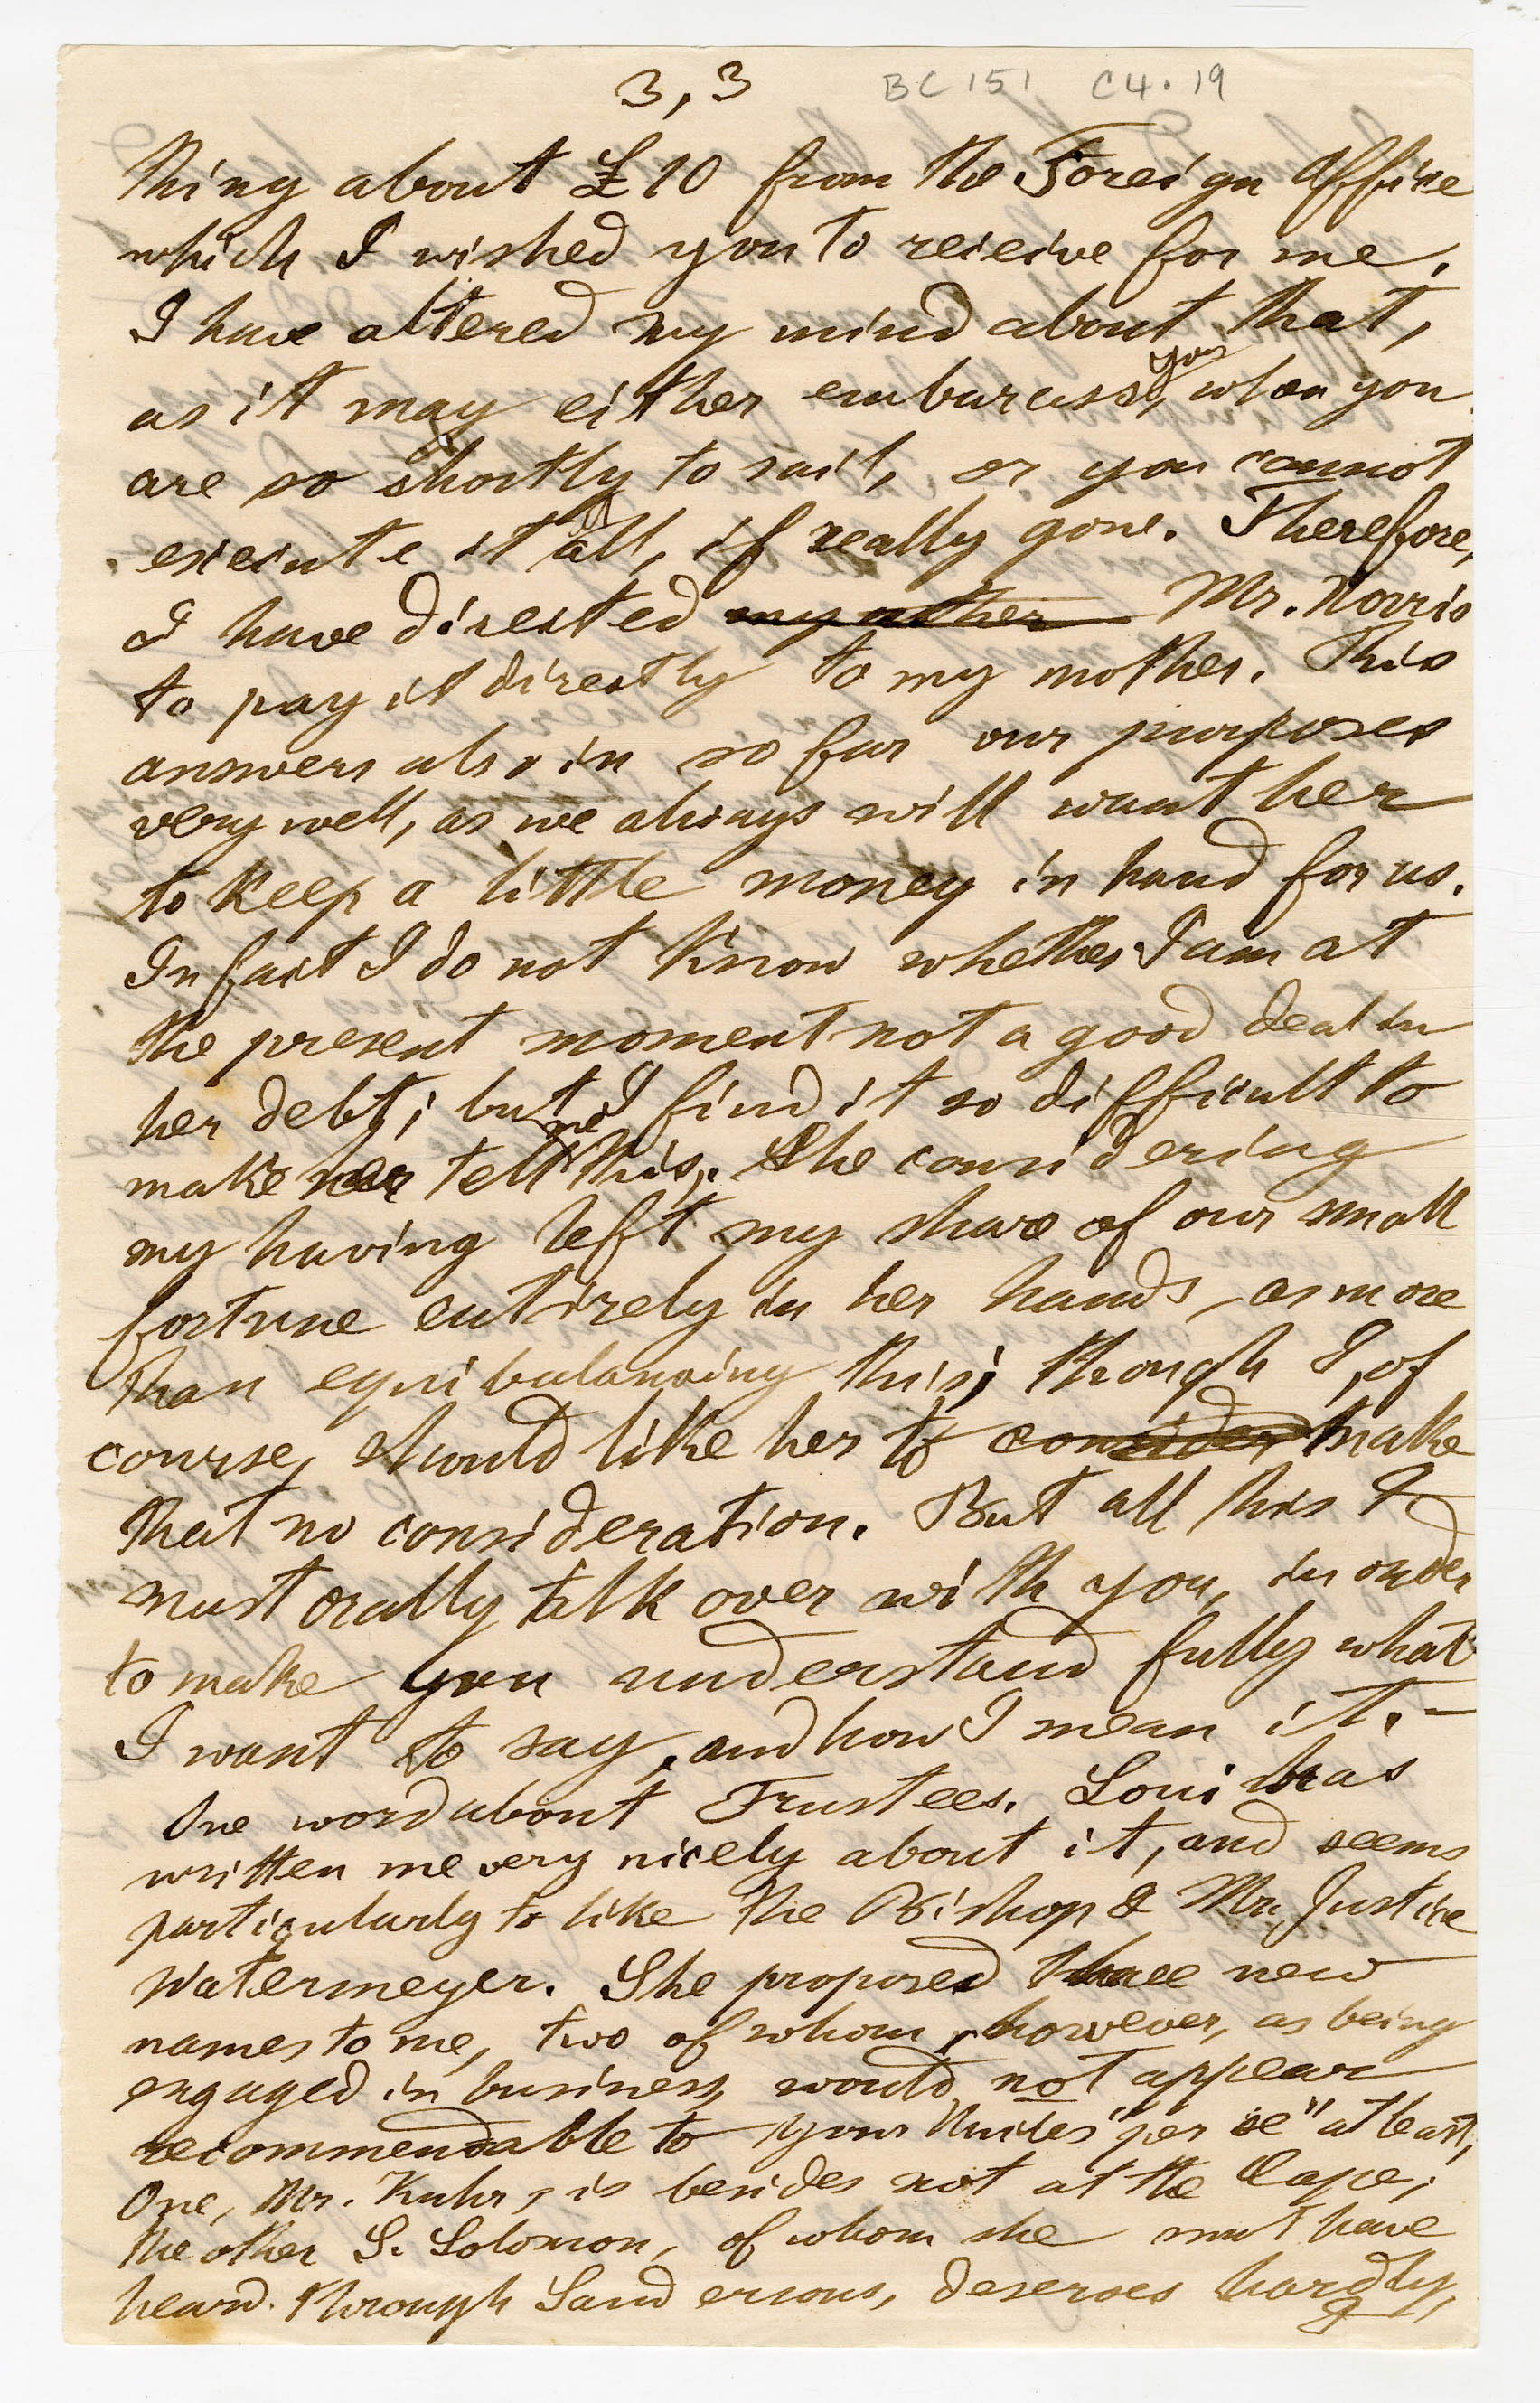 3, 3 BC 151 C4.19
thing about £10 from the Foreign Office
which I wished you to receive for me.
I have altered my mind about that,
as it may either embarass you, when you
are so shortly to sail, or you cannot
execute it all, if really gone. Therefore,
I have directed my mother Mr. Norris
to pay it directly to my mother. This
answers also in so far our purposes
very well, as we always will want her
to keep a little money in hand for us.
In fact I do not know whether I am at
the present moment not a good deal in
her debt; but I find it so difficult to
make her tell me this, She considering
my having left my share of our small
fortune entirely in her hands, as more
than equibalancing this; though I, of
course, should like her to consider make
that no consideration. But all this I
must orally talk over with you, in order
to make you understand fully what
I want to say, and how I mean it. –
One word about Trustees. Loui has
written me very nicely about it, and seems
particularly to like the Bishop & Mr. Justice
Watermeyer. She proposed three new
names to me, two of whom, however, as being
engaged in business, would not appear
recommendable to your "per se" at least,
One, Mr. Kuhr, is besides not at the Cape;
the other S. Solomon, of whom she must have
heard through Sandersons, deserves hardly,